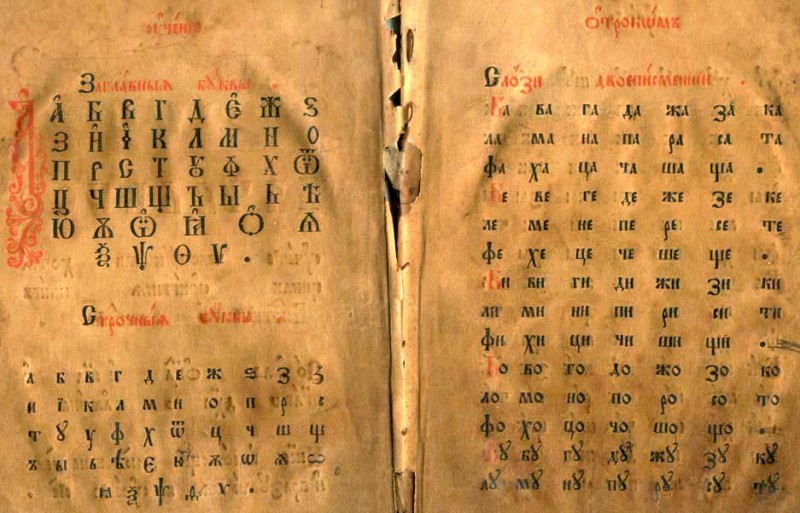 оу҆че́нїе
Заглавныя бꙋквы.
А Б В Г Д Є Ж Ѕ
З И І К Л М Н О
П Р С Т Ꙋ Ф Х Ѿ
Ц Ч Ш Щ Ъ Ы Ь Ѣ
Ю Ѫ Ѡ Ꙗ Ѻ Ѧ
Ѯ Ѱ Ѳ Ѵ .
Строчныя бꙋквы
а б в г д е ж ѕ З з
и ї к л м н о п р с
т ꙋ у ф х ѿ ц ч ш щ
ъ ы ь ѣ є ю ѫ ѡ ѧ
ꙗ ѯ ѱ ѵ .
Отрокѡмъ
Слози двоеписменнїи .
Ба ва га да жа за ка
ла ма на па ра са та
фа ха ца ча ша ща .
Бе ве ге де же зе ке
ле ме не пе ре се те
фе хе це че ше ще .
Би ви ги ди жи зи ки
ли ми ни пи ри си ти
фи хи ци чи ши щи .
Бо во го до жо зо ко
ло мо но по ро со то
фо хо цо чо шо що .
бꙋ гꙋ дꙋ жꙋ зꙋ кꙋ
лꙋ мꙋ нꙋ пꙋ рꙋ сꙋ тꙋ